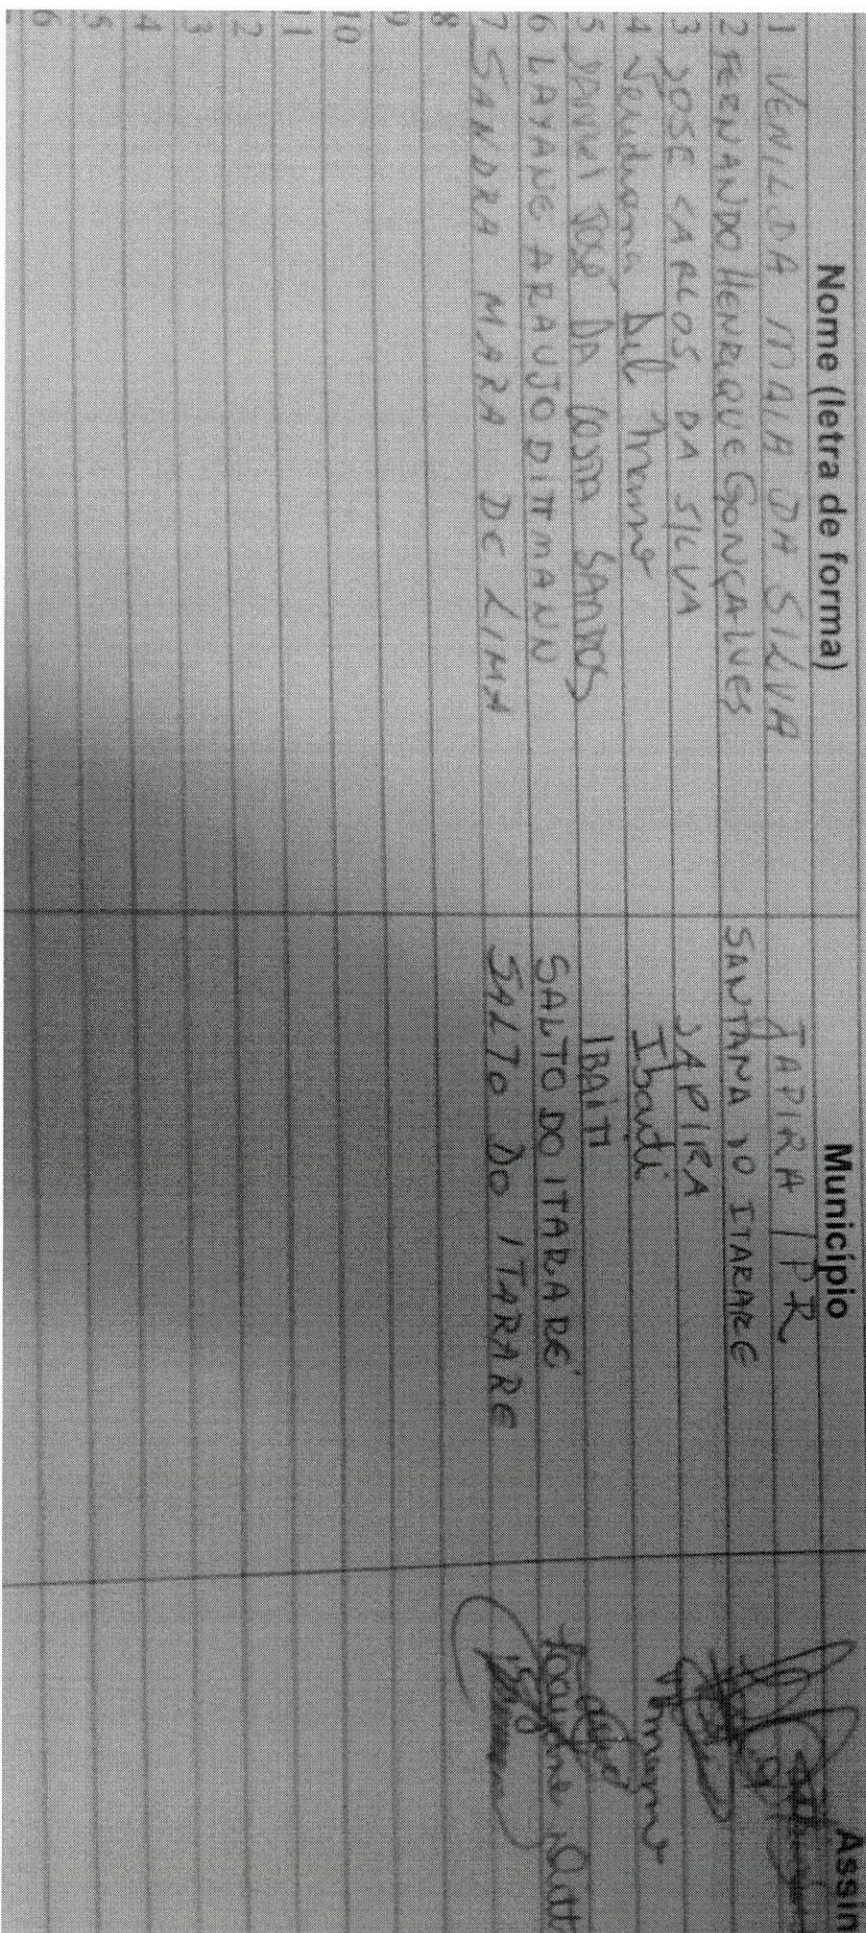 Nome (letra de forma) Município Assin
1 VENILDA MAIA DA SILVA JAPIRA / PR
2 FERNANDO HENRIQUE GONÇALVES SANTANA DO ITARARE
3 JOSE CARLOS DA SILVA JAPIRA
4 Del Ibaiti
5 JOSÉ DA COSTA SANTOS IBAITI
6 LAYANE ARAUJO DITTMANN SALTO DO ITARARÉ Layane Ditt
7 SANDRA MARA DE LIMA SALTO DO ITARARE
8
9
10
11
12
13
14
15
16